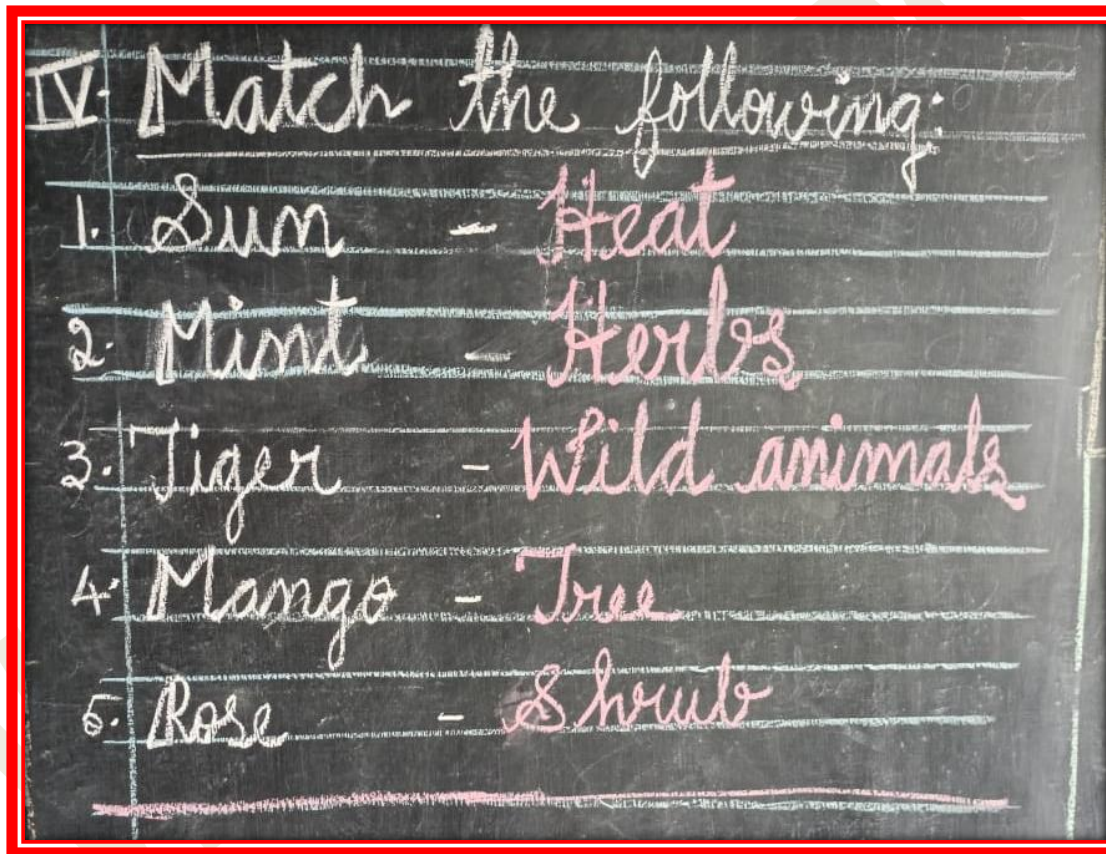 IV. Match the following:
1. Sun - Heat
2. Mint - Herbs
3. Tiger - Wild animals
4. Mango - Tree
5. Rose - Shrub